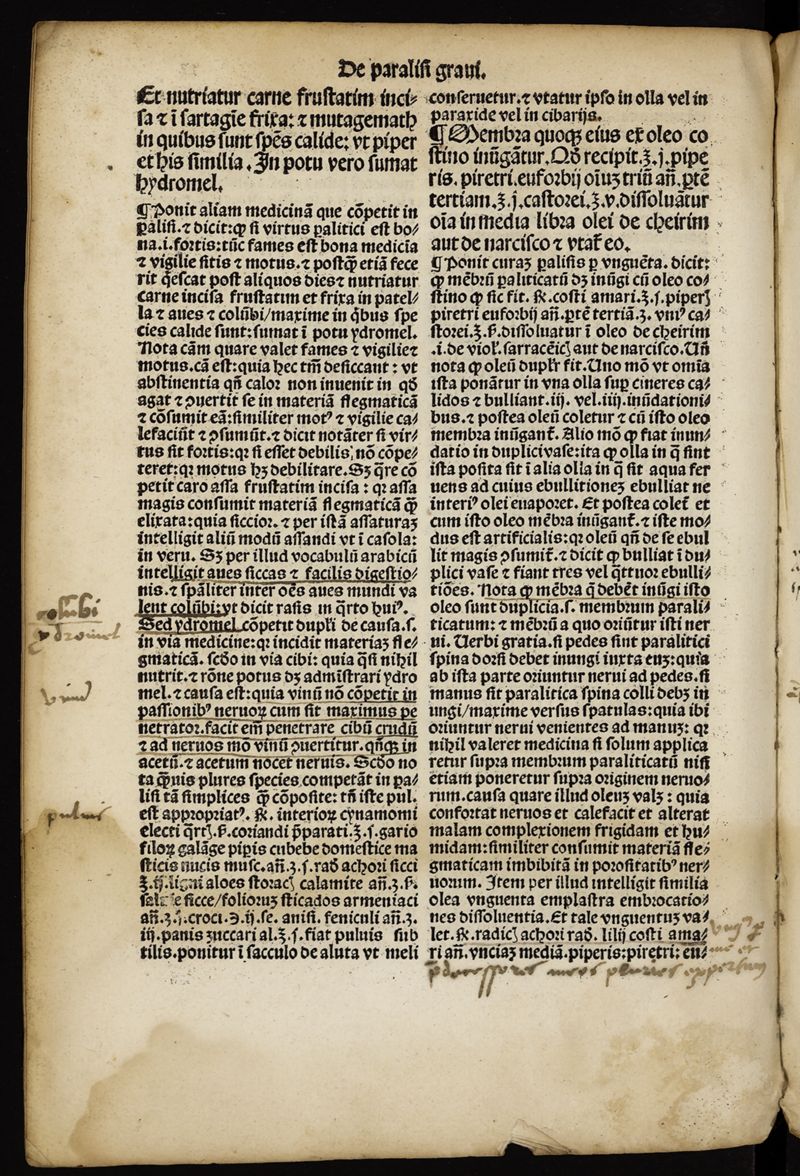 De paralisi graui.
Et nutriatur carne frustatim inci⸗
sa ⁊ ī sartagīe frixa: ⁊ mutagemath
in quibus sunt spēs calide: vt piper
et his similia. In potu vero sumat
hydromel.
¶ Ponit aliam medicinā que cōpetit in
ꝑalisi. ⁊ dicit: ꝙ si virtus ꝑalitici est bo⸗
na. i. fortis: tūc fames est bona medicīa
⁊ vigilie sitis ⁊ motus. ⁊ postꝙ̄ etiā fece
rit q̇escat post aliquos dies ⁊ nutriatur
carne incisa frustatim et frixa in patel⸗
la ⁊ aues ⁊ colūbi/maxime in q̇bus spe
cies calide sunt: sumat ī potu ydromel.
Nota cām quare valet fames ⁊ vigilie ⁊
motus. cā est: quia hec tm̄ desiccant: vt
abstinentia qn̄ calor non inuenit in qđ
agat ⁊ ꝯuertit se in materiā flegmaticā
⁊ cōsumit eā: similiter motꝰ ⁊ vigilie ca⸗
lefaciūt ⁊ ꝯsumūt. ⁊ dicit notāter si vir⸗
tus sit fortis: qꝛ si esset debilis, nō cōpe⸗
teret: qꝛ motus hꝫ debilitare. Sꝫ q̄re cō
petit caro assa frustatim incisa: qꝛ assa
magis consumit materiā flegmaticā ꝙ̄
elixata: quia siccior. ⁊ per istā assaturaꝫ
intelligit aliū modū assandi vt ī casola:
in veru. Sꝫ per illud vocabulū arabicū
intelligit aues siccas ⁊ facilis digestio⸗
nis. ⁊ spāliter inter oēs aues mundi va
lent colūbi: vt dicit rasis in q̄rto huiꝰ.
Sed ydromel cōpetit dupl'r de causa. s.
in via medicine: qꝛ incidit materiaꝫ fle⸗
gmaticā. scđo in via cibi: quia q̄si nihil
nutrit. ⁊ rōne potus dꝫ admīstrari ydro
mel. ⁊ causa est: quia vinū nō cōpetit in
passionibꝰ neruoꝝ cum sit maximus pe
netrator. facit em̄ penetrare cibū crudū
⁊ ad neruos mō vinū ꝯuertitur. qn̄qꝫ in
acetū. ⁊ acetum nocet neruis. Scđo no
ta ꝙ̄uis plures species competāt in ꝑa⸗
lisi tā simplices ꝙ̄ cōposite: tn̄ iste pul.
est appropriatꝰ. ℞. interioꝝ cynamomi
electi q̄rt. ꝭ. coriandi p̄parati. ʒ. s. gario
filoꝝ galāge pipis cubebe domestice ma
sticis nucis musc. an̄. ʒ. s. rađ achori sicci
ʒ. ij. ligni aloes storac calamite an̄. ʒ. ꝭ.
sicce/folioruꝫ sticados armeniaci
croci. ℈. ij. se. anisi. feniculi an̄. ʒ.
iij. panis zuccari al. ℥. s. fiat puluis sub
tilis. ponitur ī sacculo de aluta vt meli
conseruetur. ⁊ vtatur ipso in olla vel in
paraxide vel in cibarijs.
¶ Membra quoqꝫ eius ex oleo co
stino inūgātur. Qđ recipit. ℥. j. pipe
ris. piretri. euforbij oīuꝫ triū an̄. ꝑtē
tertiam. ℥. j. castorei. ℥. v. dissoluātur
oīa in media libra olei de cheirim
aut de narcisco ⁊ vtat̄ eo.
¶ Ponit curaꝫ ꝑalisis ꝑ vnguēta. dicit:
ꝙ mēbrū ꝑaliticatū dꝫ inūgi cū oleo co⸗
stino ꝙ sic fit. ℞. costi amari. ℥. s. piperꝭ
piretri euforbij an̄. ꝑtē tertiā. ʒ. vniꝰ ca⸗
storei. ℥. ꝭ. dissoluatur ī oleo de cheirim
.i. de viol'. sarracēicꝭ aut de narcisco. Un̄
nota ꝙ oleū dupl'r fit. Uno mō vt omīa
ista ponātur in vna olla suꝑ cineres ca⸗
lidos ⁊ bulliant. iij. vel. iiij. inūdationi⸗
bus. ⁊ postea oleū coletur ⁊ cū isto oleo
membra inūgant̄. Alio mō ꝙ fiat inun⸗
datio in duplici vase: ita ꝙ olla in q̄ sint
ista posita sit ī alia olla in q̄ sit aqua fer
uens ad cuius ebullitioneꝫ ebulliat ne
interiꝰ olei euaporet. Et postea colet̄ et
cum isto oleo mēbra inūgant̄. ⁊ iste mo⸗
dus est artificialis: qꝛ oleū qn̄ de se ebul
lit magis ꝯsumit̄. ⁊ dicit ꝙ bulliat ī du⸗
plici vase ⁊ fiant tres vel q̄ttuor ebulli⸗
tiōes. Nota ꝙ mēbra q̄ debēt inūgi isto
oleo sunt duplicia. s. membrum parali⸗
ticatum: ⁊ mēbrū a quo oriūtur isti ner
ui. Uerbi gratia. si pedes sint paralitici
spina dorsi debet inungi iuxta euꝫ: quia
ab ista parte oriuntur nerui ad pedes. si
manus sit paralitica spina colli debꝫ in
ungi/maxime versus spatulas: quia ibi
oriuntur nerui venientes ad manuꝫ: qꝛ
nihil valeret medicina si solum applica
retur supra membrum paraliticatū nisi
etiam poneretur supra originem neruo⸗
rum. causa quare illud oleuꝫ valꝫ: quia
confortat neruos et calefacit et alterat
malam complexionem frigidam et hu⸗
midam: similiter consumit materiā fle⸗
gmaticam imbibitā in porositatibꝰ ner⸗
uorum. Item per illud intelligit similia
olea vnguenta emplastra embrocatio⸗
nes dissoluentia. Et tale vnguentuꝫ va⸗
let. ℞. radicꝭ achori rađ. lilij costi ama⸗
ri an̄. vnciaꝫ mediā. piperis: piretri: eu⸗
colūbi
ydromel
vinū
puluis